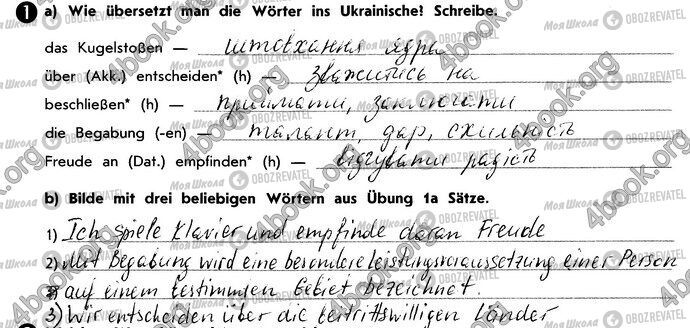 1 a) Wie übersetzt man die Wörter ins Ukrainische? Schreibe.
das Kugelstoßen — штовхання ядра
über (Akk.) entscheiden* (h) — зважитись на
beschließen* (h) — приймати, заключати
die Begabung (-en) — талант, дар, схильність
Freude an (Dat.) empfinden* (h) — відчувати радість
b) Bilde mit drei beliebigen Wörtern aus Übung 1a Sätze.
1) Ich spiele Klavier und empfinde daran Freude
2) Mit Begabung wird eine besondere Leistungsvoraussetzung einer Person
auf einem bestimmten Gebiet bezeichnet.
3) Wir entscheiden über die beitrittswilligen Länder
4book.org
Моя Школа
OBOZREVATEL